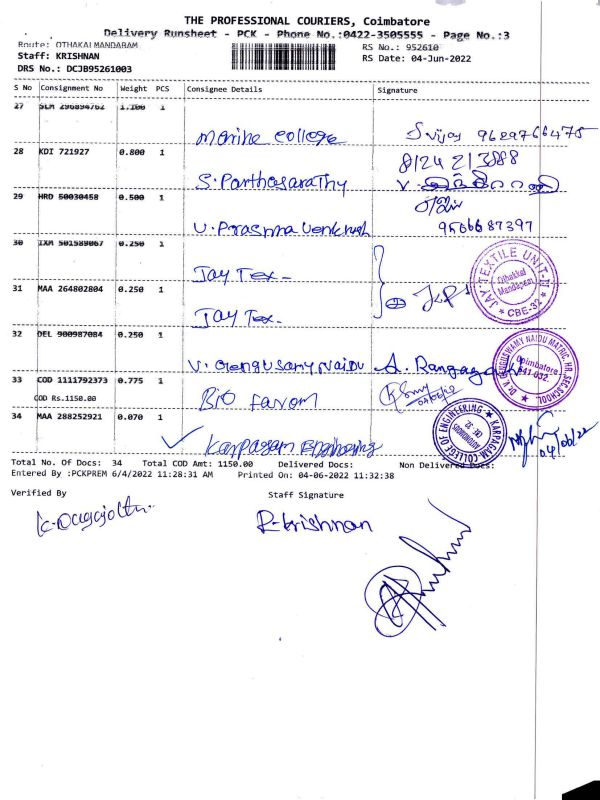 THE PROFESSIONAL COURIERS, Coimbatore
Delivery Runsheet - PCK - Phone No.:0422-3505555 - Page No.:3
Route: OTHAKALMANDABAM
RS No.: 952610
Staff: KRISHNAN
RS Date: 04-Jun-2022
DRS No.: DCJB95261003
S No Consignment No Weight PCS Consignee Details Signature
27 SLM 296894762 1.100 1
Marine College S vijay 9629766475
28 KDI 721927 0.800 1
8124213888
S. Parthasarathy
29 HRD 50030458 0.500 1
9566687397
30 IXM 501589067 0.250 1
Jay Tex -
31 MAA 264802804 0.250 1
Jay Tex.
JAY TEXTILE UNIT-II
Othakkal
Mandapam
* CBE-32 *
32 DEL 900987084 0.250 1
V. Rengusamy Naidu A. Rangaga
33 COD 1111792373 0.775 1
COD Rs.1150.00
Bio favom
04/06/22
Coimbatore
641-032.
34 MAA 288252921 0.070 1
Karpagam Engineering
KARPAGAM COLLEGE OF ENGINEERING
04/06/22
Total No. Of Docs: 34 Total COD Amt: 1150.00 Delivered Docs: Non Delivered Docs:
Entered By :PCKPREM 6/4/2022 11:28:31 AM Printed On: 04-06-2022 11:32:38
Verified By Staff Signature
R-krishnan